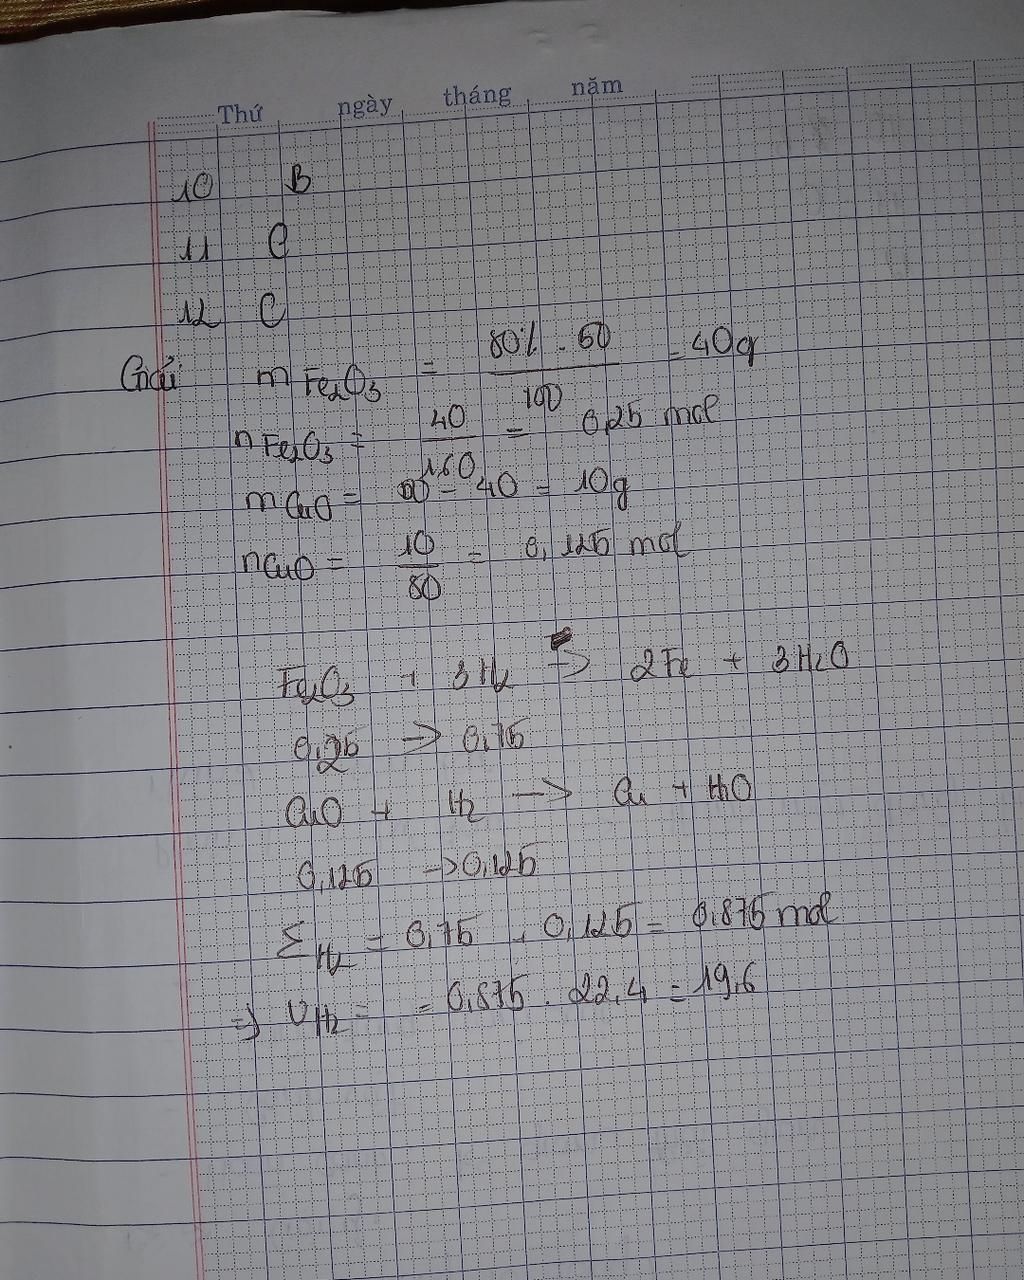 Thứ ngày tháng năm
10 B
11 C
12 C
Giải m Fe2O3 = 80% . 50 / 100 = 40g
n Fe2O3 = 40 / 160 = 0,25 mol
m CuO = 50 - 40 = 10g
n CuO = 10 / 80 = 0,125 mol
Fe2O3 + 3H2 -> 2Fe + 3H2O
0,25 -> 0,75
CuO + H2 -> Cu + H2O
0,125 -> 0,125
Σ H2 = 0,75 + 0,125 = 0,875 mol
=> V H2 = = 0,875 . 22,4 = 19,6